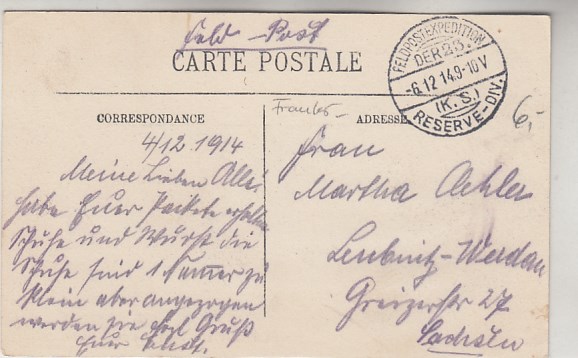 Feld-Post
CARTE POSTALE
FELDPOSTEXPEDITION
DER 23.
-6.12 14.9-10V
(K.S.)
RESERVE-DIV.
6,-
CORRESPONDANCE
4/12 1914
Meine Lieben Alle!
habe Euer Packete erhalten
Schuhe und Wurst die
Schuhe sind 1 Nummer zu
klein aber angezogen
werden sie doch Gruß
Euer Ernst.
ADRESSE
Frau
Martha Oehler
Leubnitz-Werdau
Greizerstr 27
Sachsen